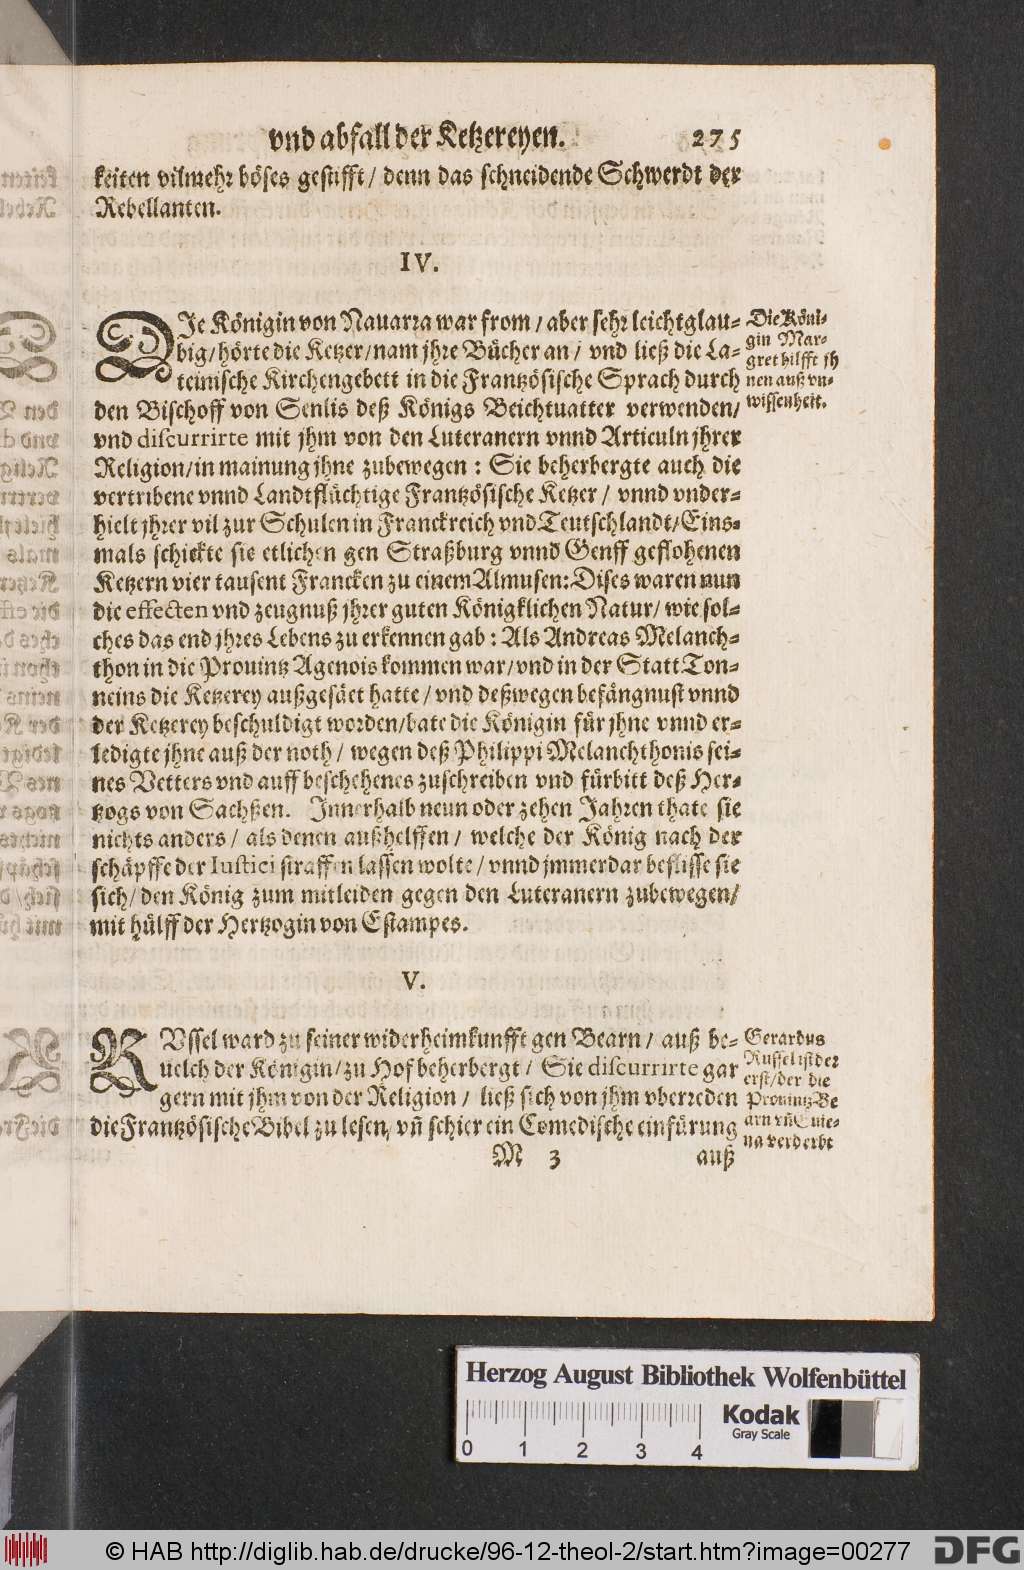 vnd abfall der Ketzereyen. 275
keiten vilmehr böses gestifft / denn das schneidende Schwerdt der
Rebellanten.
IV.
DIe Königin von Nauarra war from / aber sehr leichtglau-
big / hörte die Ketzer / nam jhre Bücher an / vnd ließ die La-
teinische Kirchengebett in die Frantzösische Sprach durch
den Bischoff von Senlis deß Königs Beichtuatter verwenden /
vnd discurrirte mit jhm von den Luteranern vnnd Articuln jhrer
Religion / in mainung jhne zubewegen : Sie beherbergte auch die
vertribene vnnd Landtflüchtige Frantzösische Ketzer / vnnd vnder-
hielt jhrer vil zur Schulen in Franckreich vnd Teutschlandt / Eins-
mals schickte sie etlichen gen Straßburg vnnd Genff geflohenen
Ketzern vier tausent Francken zu einem Almusen: Dises waren nun
die effecten vnd zeugnuß jhrer guten Königklichen Natur / wie sol-
ches das end jhres Lebens zu erkennen gab : Als Andreas Melanch-
thon in die Prouintz Agenois kommen war / vnd in der Statt Ton-
neins die Ketzerey außgesäet hatte / vnd deßwegen befängnust vnnd
der Ketzerey beschuldigt worden / bate die Königin für jhne vnnd er-
ledigte jhne auß der noth / wegen deß Philippi Melanchthonis sei-
nes Vetters vnd auff beschehenes zuschreiben vnd fürbitt deß Her-
tzogs von Sachßen. Innerhalb neun oder zehen Jahren thate sie
nichts anders / als denen außhelffen / welche der König nach der
schäpffe der Iustici straffen lassen wolte / vnnd jmmerdar beflisse sie
sich / den König zum mitleiden gegen den Luteranern zubewegen /
mit hülff der Hertzogin von Estampes.
Die Köni-
gin Mar-
gret hilfft jh
nen auß vn-
wissenheit.
V.
RVssel ward zu seiner widerheimkunfft gen Bearn / auß be-
uelch der Königin / zu Hof beherbergt / Sie discurrirte gar
gern mit jhm von der Religion / ließ sich von jhm vberreden
die Frantzösische Bibel zu lesen, vñ schier ein Comedische einfürung
Gerardus
Russel ist der
erst / der die
Prouintz Be
arn vñ Guie-
na verderbt
M 3 auß
Herzog August Bibliothek Wolfenbüttel
0 1 2 3 4
Kodak
Gray Scale
© HAB http://diglib.hab.de/drucke/96-12-theol-2/start.htm?image=00277
DFG